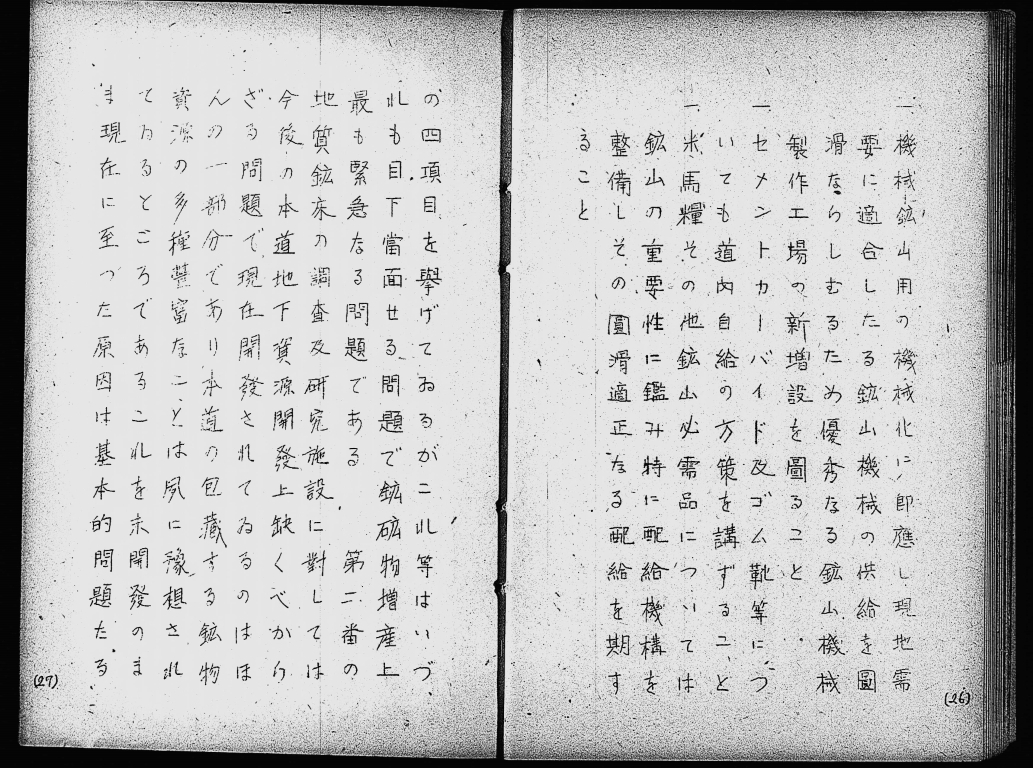 一
機械鉱山用の機械化に即應し現地需
要に適合したる鉱山機械の供給を圓
滑ならしむるため優秀なる鉱山機械
製作工場の新増設を圖ること
一
セメントカーバイド及ゴム靴等につ
いても道内自給の方策を講ずること
一
米馬糧その他鉱山必需品については
鉱山の重要性に鑑み特に配給機構を
整備しその圓滑適正なる配給を期す
ること
(26)
の四項目を擧げてゐるがこれ等はいづ
れも目下當面せる問題で鉱砿物増産上
最も緊急なる問題である 第二番の
地質鉱床の調査及研究施設に對しては
今後の本道地下資源開發上缺くべから
ざる問題で現在開發されてゐるのはほ
んの一部分であり本道の包藏する鉱物
資源の多種豊富なことは夙に豫想され
てゐるところであるこれを未開發のま
ま現在に至つた原因は基本的問題たる
(27)